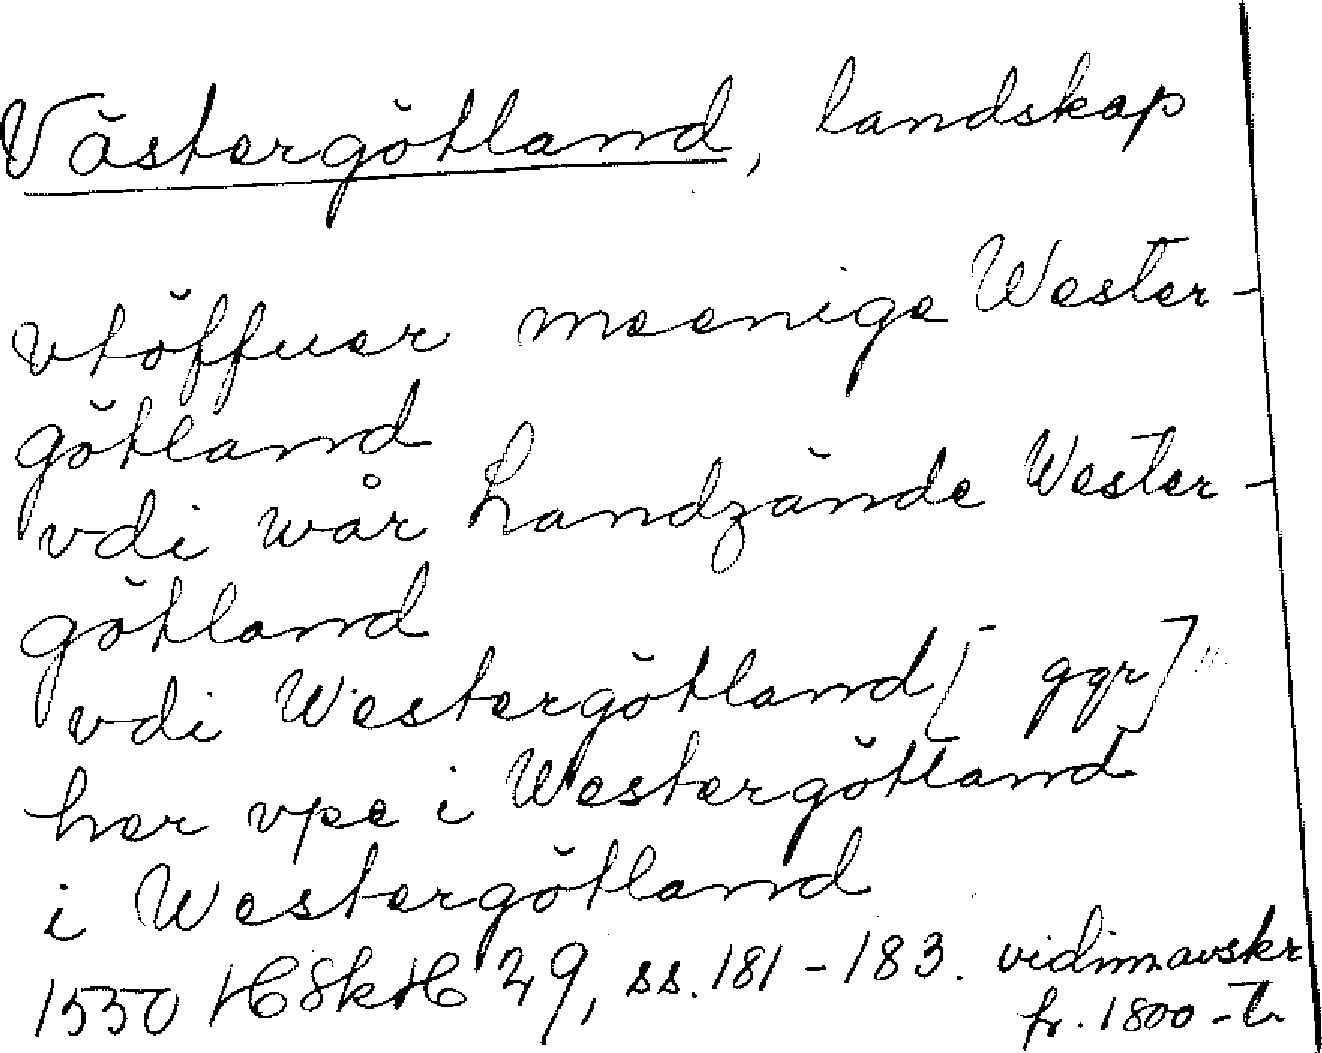 Västergötland, landskap
vtöffuer meenige Wester-
götland
vdi wår Landzände Wester-
götland
vdi Westergötland [ ggr]
her vpe i Westergötland
i Westergötland
1550 HSkH 29, ss. 181-183. vidim.avskr
fr. 1800-t